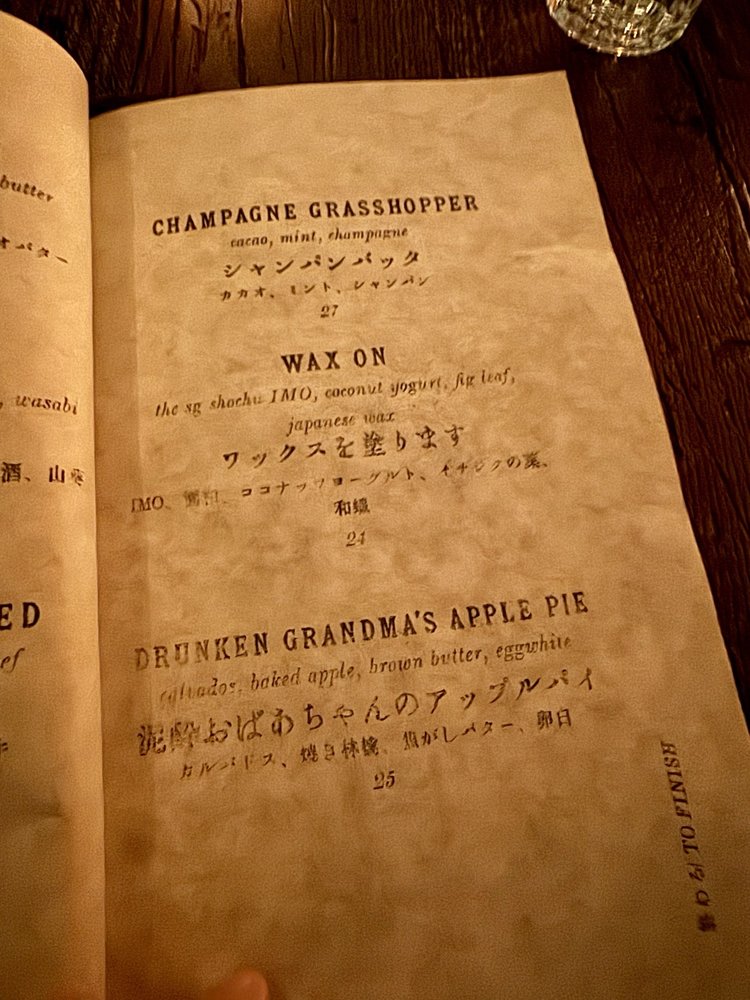 butter
オバター
, wasabi
酒、山葵
ED
ef
CHAMPAGNE GRASSHOPPER
cacao, mint, champagne
シャンパンバッタ
カカオ、ミント、シャンパン
27
WAX ON
the sg shochu IMO, coconut yogurt, fig leaf,
japanese wax
ワックスを塗ります
IMO、焼酎、ココナッツヨーグルト、イチジクの葉、
和蝋
24
DRUNKEN GRANDMA'S APPLE PIE
calvados, baked apple, brown butter, eggwhite
泥酔おばあちゃんのアップルパイ
カルバドス、焼き林檎、焦がしバター、卵白
25
終わる/ TO FINISH